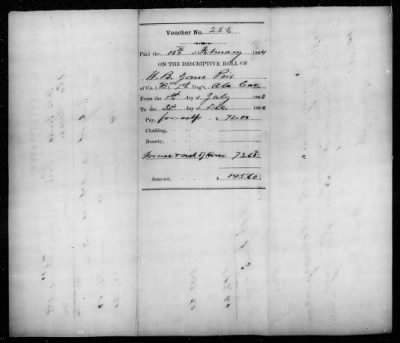 Voucher No. 286
Paid the 15th February 1864
ON THE DESCRIPTIVE ROLL OF
W. B. Jones Priv
of Co. 1st Reg't. Ala Cav
From the 1st day of July 1863
To the 31 day of Dec 1863
Pay, $ 72.00
Clothing,
Bounty,
For use & risk of Horse 73.60
Amount, $ 145.60